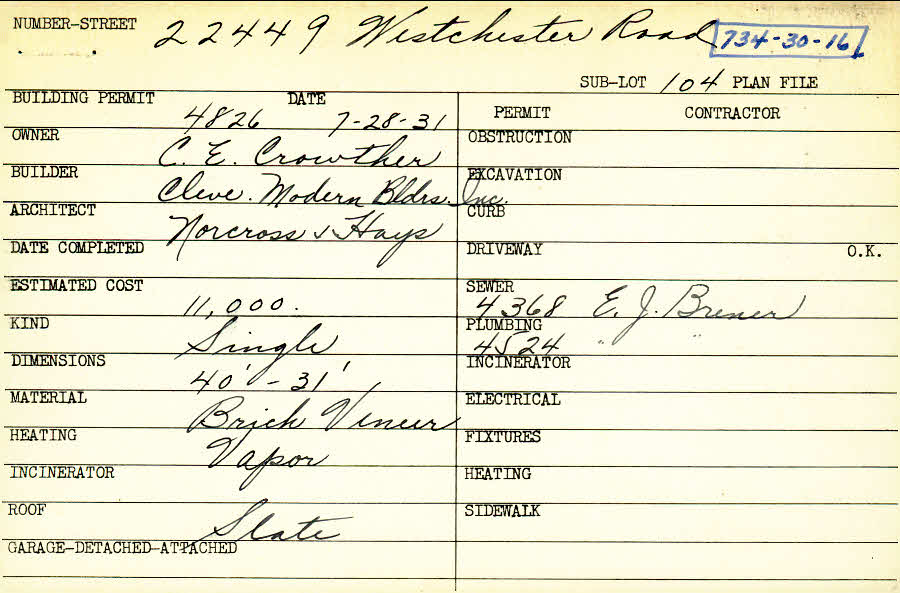 NUMBER-STREET 22449 Westchester Road 734-30-16
SUB-LOT 104 PLAN FILE
BUILDING PERMIT 4826 DATE 7-28-31
OWNER C. E. Crowther
BUILDER Cleve. Modern Bldrs. Inc.
ARCHITECT Norcross & Hays
DATE COMPLETED
ESTIMATED COST 11,000.
KIND Single
DIMENSIONS 40' - 31'
MATERIAL Brick Veneer
HEATING Vapor
INCINERATOR
ROOF Slate
GARAGE-DETACHED-ATTACHED
PERMIT CONTRACTOR
OBSTRUCTION
EXCAVATION
CURB
DRIVEWAY O.K.
SEWER 4368 E. J. Brener
PLUMBING 4524 " "
INCINERATOR
ELECTRICAL
FIXTURES
HEATING
SIDEWALK